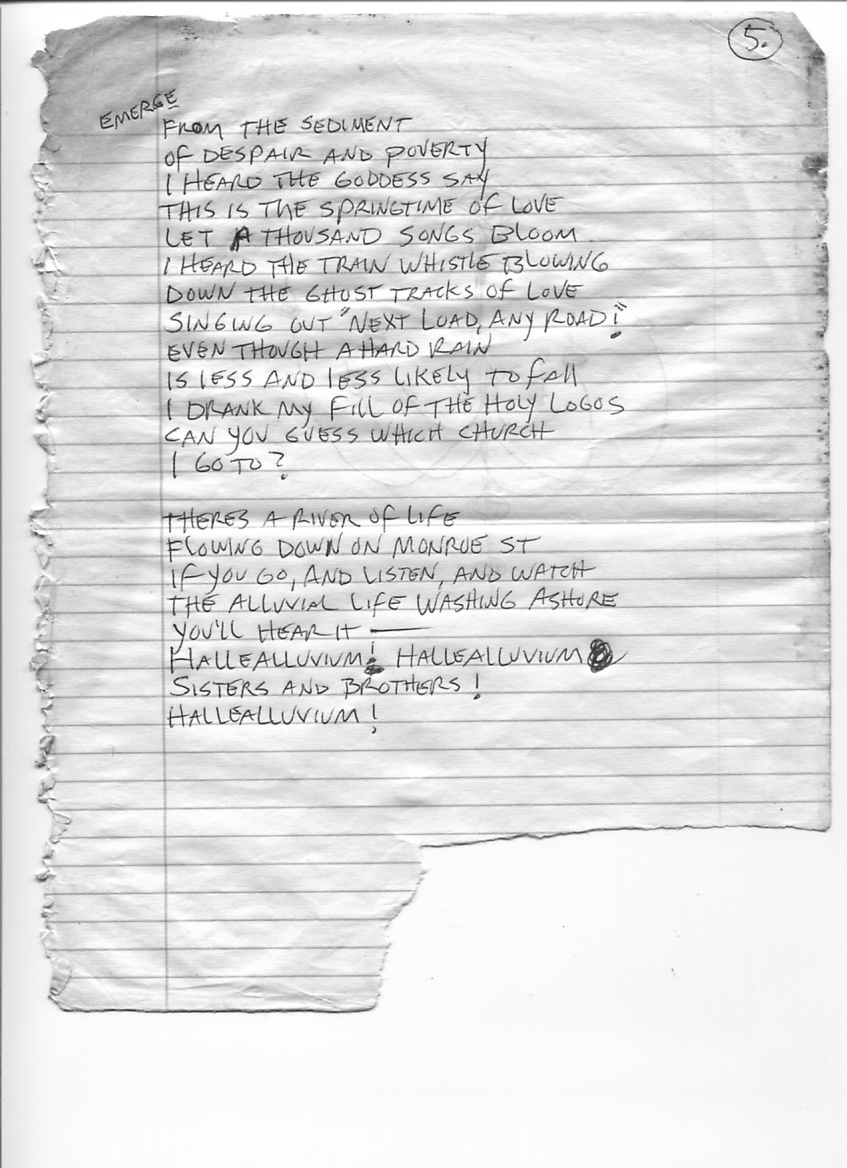 5.
EMERGE
FROM THE SEDIMENT
OF DESPAIR AND POVERTY
I HEARD THE GODDESS SAY
THIS IS THE SPRINGTIME OF LOVE
LET A THOUSAND SONGS BLOOM
I HEARD THE TRAIN WHISTLE BLOWING
DOWN THE GHOST TRACKS OF LOVE
SINGING OUT "NEXT LOAD, ANY ROAD!"
EVEN THOUGH A HARD RAIN
IS LESS AND LESS LIKELY TO FALL
I DRANK MY FILL OF THE HOLY LOGOS
CAN YOU GUESS WHICH CHURCH
I GO TO?
THERES A RIVER OF LIFE
FLOWING DOWN ON MONROE ST
IF YOU GO, AND LISTEN, AND WATCH
THE ALLUVIAL LIFE WASHING ASHORE
YOU'LL HEAR IT —
HALLEALLUVIUM! HALLEALLUVIUM
SISTERS AND BROTHERS!
HALLEALLUVIUM!